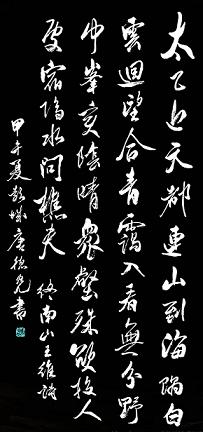 太乙近天都連山到海隅白
雲迴望合青靄入看無分野
中峯變陰晴衆壑殊欲投人
處宿隔水問樵夫 終南山王維詩
甲午夏 書